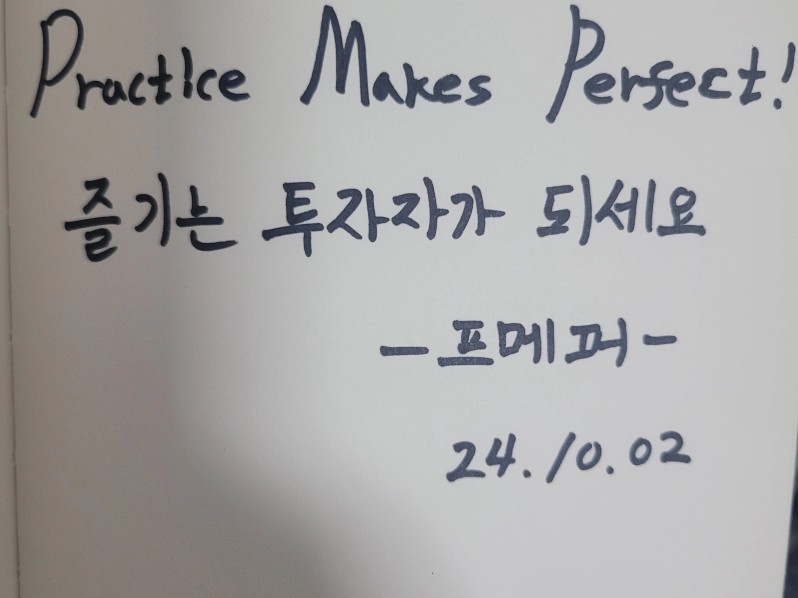 Practice Makes Perfect!
즐기는 투자자가 되세요
-프메퍼-
24.10.02